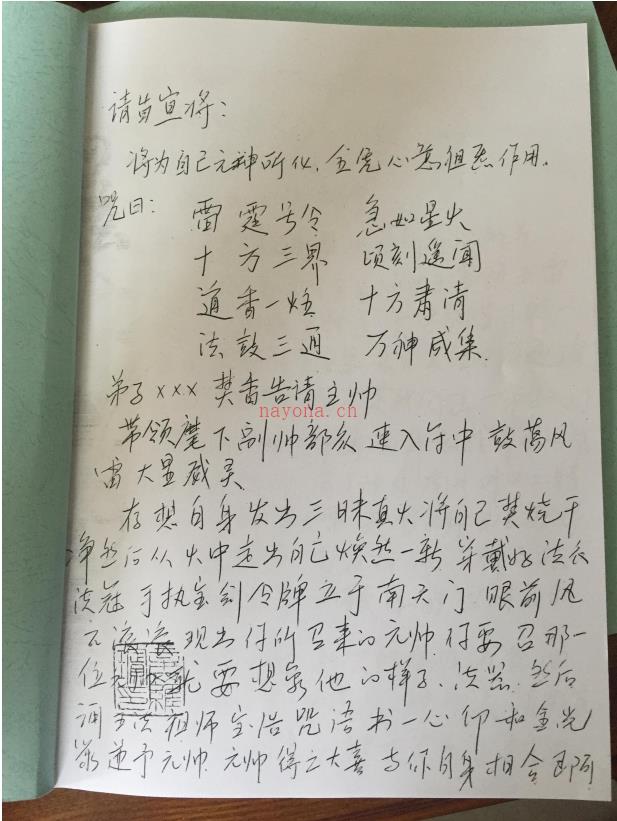 请旨宣将：
将为自己元神所化，全凭心意组炁作用。
咒曰： 雷霆号令 急如星火
十方三界 顷刻遥闻
道香一炷 十方肃清
法鼓三通 万神咸集
弟子xxx 焚香告请主帅
nayona.ch
带领麾下副帅部众 速入符中 鼓荡风
雷大显威灵
存想自身发出三昧真火将自己焚烧干
净然后从火中走出自己焕然一新 穿戴好法衣
法冠 手执宝剑令牌立于南天门 眼前风
云滚滚 现出你所召来的元帅 你要召那一
位 就要想象他的样子、法器 然后
诵 法祖师宝诰咒语书一心印和金光
篆送予元帅 元帅得之大喜 与你自身相合 即